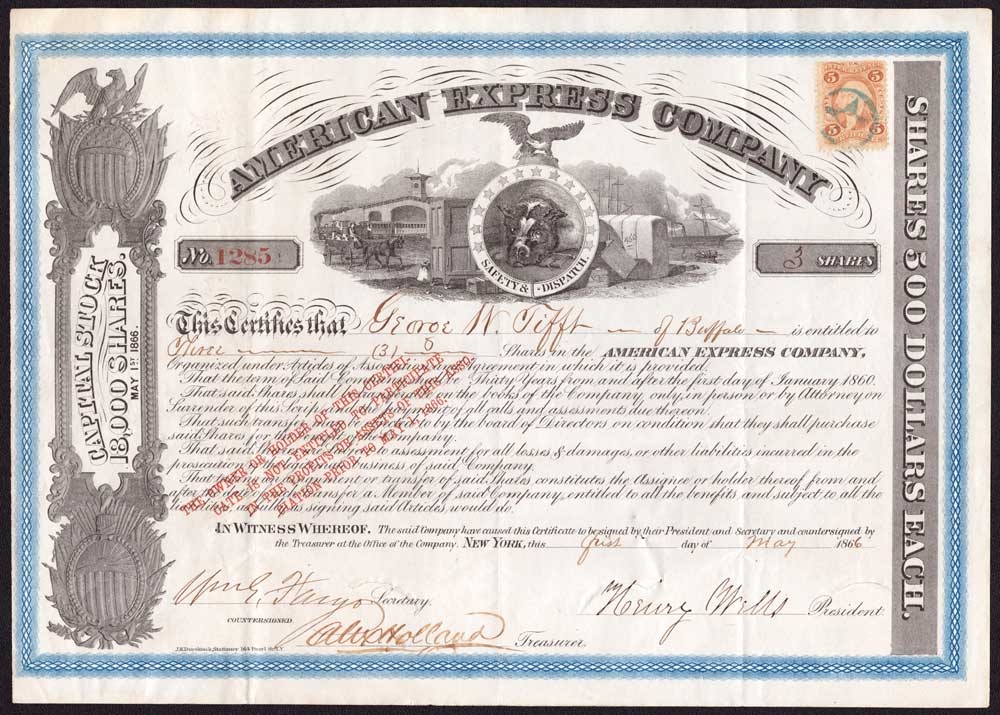 AMERICAN EXPRESS COMPANY
5 5
5 5
No. 1285
SAFETY & DISPATCH.
3 SHARES
CAPITAL STOCK
18,000 SHARES.
MAY 1ST 1866.
SHARES 500 DOLLARS EACH.
This Certifies that George W. Tifft of Buffalo is entitled to
Three (3) Shares in the AMERICAN EXPRESS COMPANY,
Organized under Articles of Agreement in which it is provided
That the term of said Com That y Years from and after the first day of January 1860.
That said shares shall the books of the Company, only, in person or by Attorney on
Surrender of this Scrip of all calls and assessments due thereon.
That such transfer to by the board of Directors on condition that they shall purchase
said Shares for Company.
That said to assessment for all losses & damages, or other liabilities incurred in the
prosecution business of said Company.
That or transfer of said Shares constitutes the Assignee or holder thereof from and
after transfer a Member of said Company, entitled to all the benefits and subject to all the
signing said Articles would do.
THE OWNER OR HOLDER OF THIS CERTIFI-
CATE IS NOT ENTITLED TO PARTICIPATE
IN THE PROFITS OR ASSETS OF THIS ASSO-
CIATION PRIOR TO MAY 1, 1866.
IN WITNESS WHEREOF. The said Company have caused this Certificate to be signed by their President and Secretary and countersigned by
the Treasurer at the Office of the Company. NEW YORK, this first day of May 1866
Wm G. Fargo Secretary.
Henry Wells President.
COUNTERSIGNED
Alex Holland Treasurer.
Stationer 164 Pearl St. N.Y.